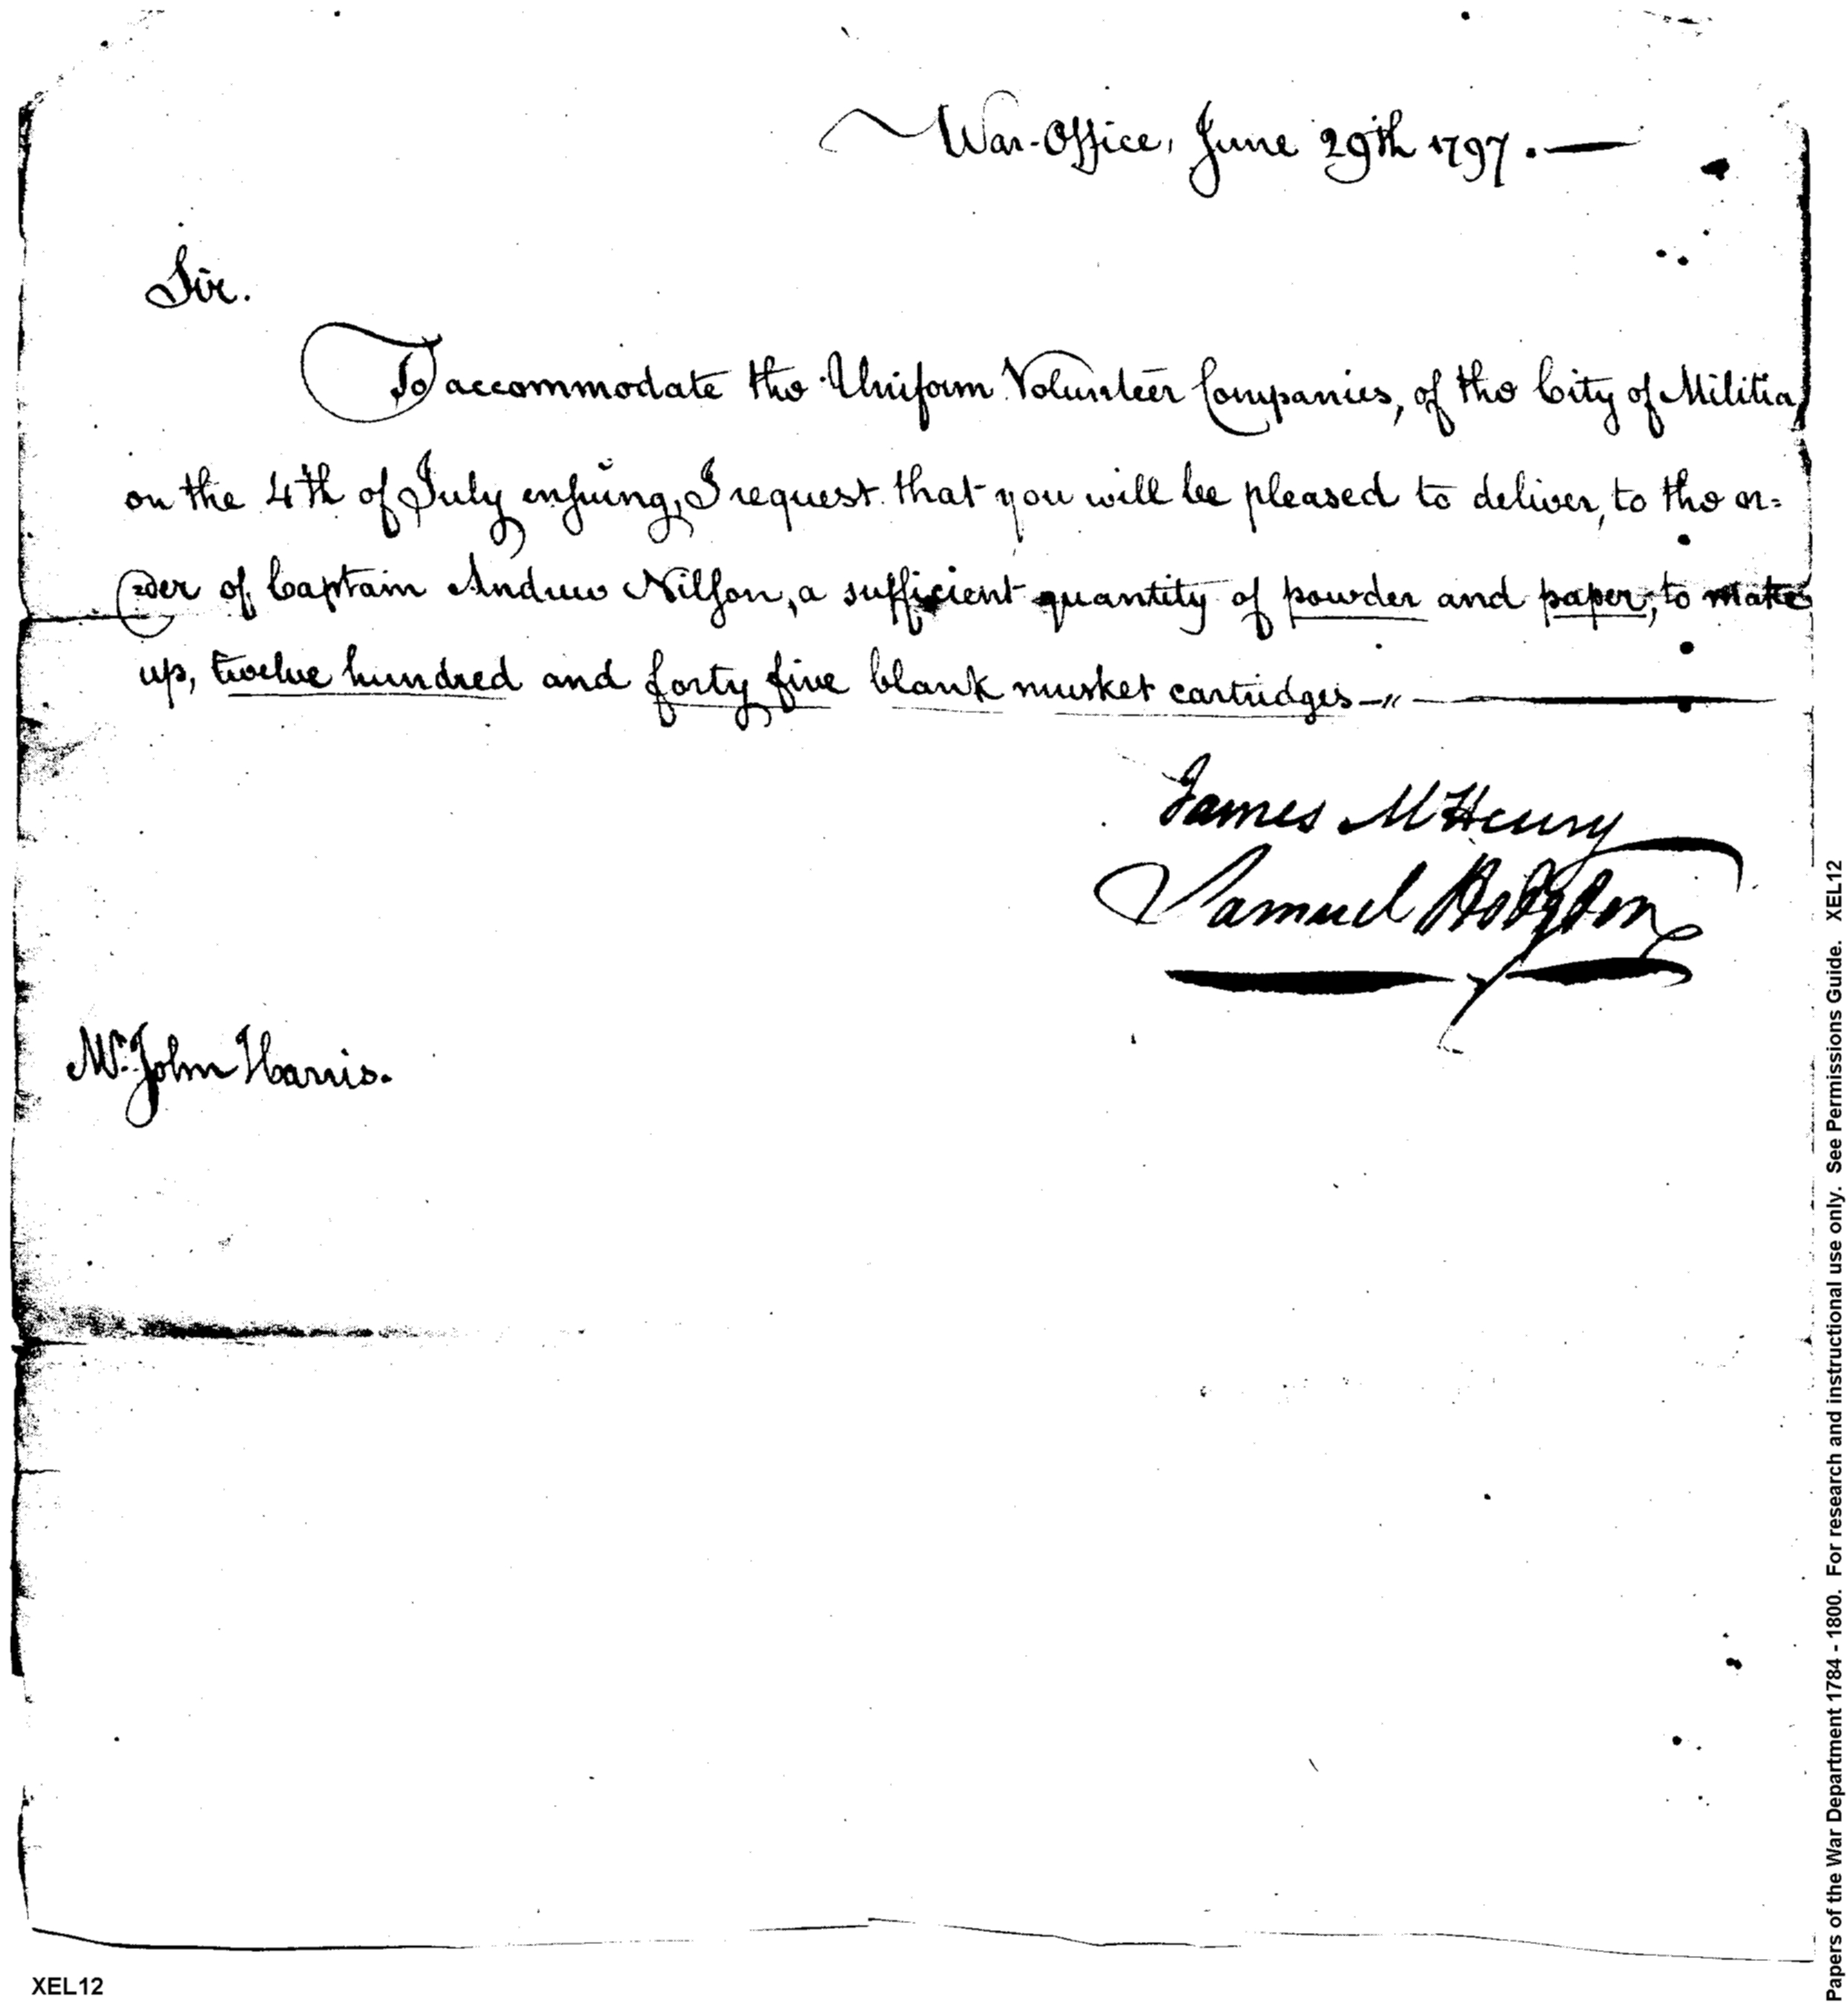 War-Office, June 29th 1797.
Sir.
To accommodate the Uniform Volunteer Companies, of the City of Militia,
on the 4th of July ensuing, I request that you will be pleased to deliver, to the or=
der of Captain Andrew Nilson, a sufficient quantity of powder and paper, to make
up, twelve hundred and forty five blank musket cartridges
James McHenry
Samuel Hodgdon
Mr. John Harris.
XEL12
Papers of the War Department 1784 - 1800. For research and instructional use only. See Permissions Guide. XEL12